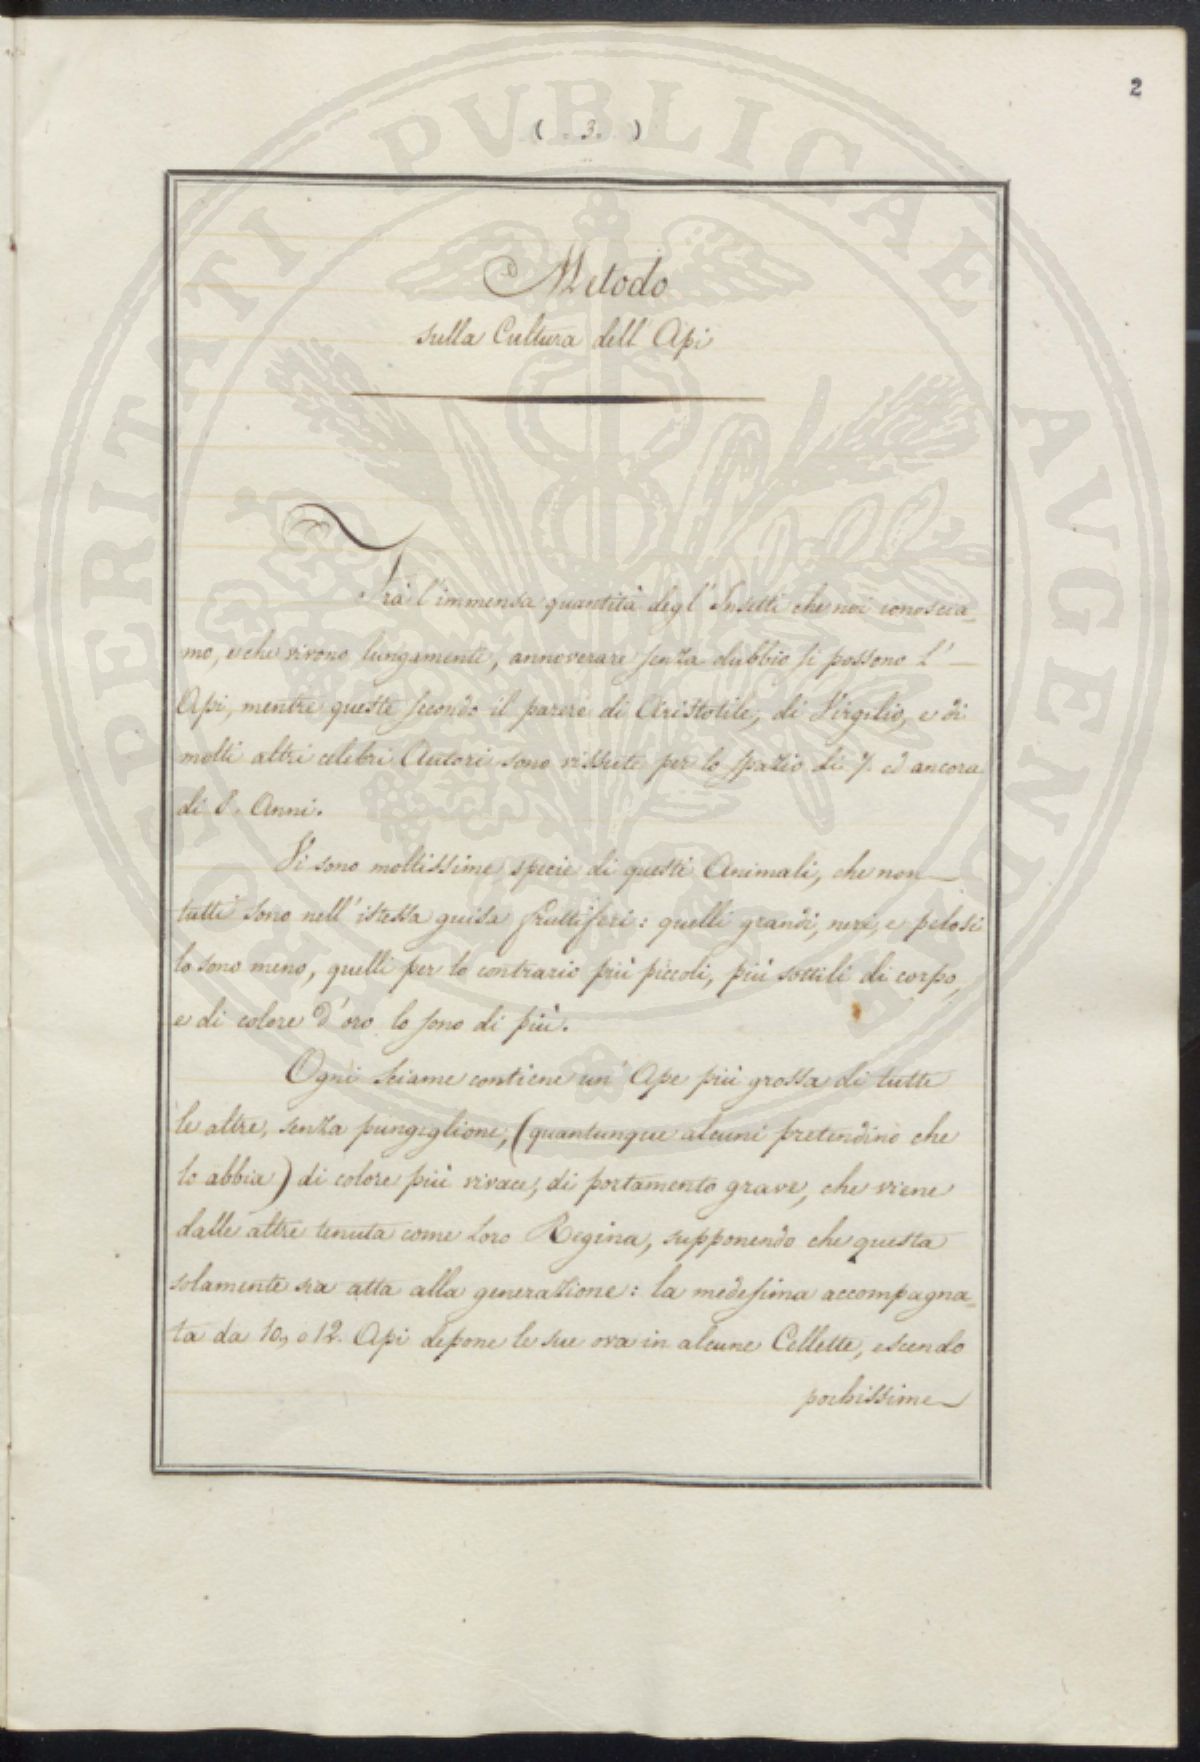 2
( . 3. )
Metodo
sulla Cultura dell' Api
Trà l'immensa quantità degl' Insetti che noi conoscia=
mo, e che vivono lungamente, annoverare senza dubbio si possono l'
Api, mentre queste secondo il parere di Aristotile, di Virgilio, e di
molti altri celebri Autori sono vissute per lo spazio di 7. ed ancora
di 8. Anni.
Vi sono moltissime specie di questi Animali, che non
tutti sono nell' istessa guisa fruttiferi: quelli grandi, neri, e pelosi
lo sono meno, quelli per lo contrario più piccoli, più sottili di corpo,
e di colore d'oro lo sono di più.
Ogni sciame contiene un' Ape più grossa di tutte
le altre, senza pungiglione, (quantunque alcuni pretendino che
lo abbia) di colore più vivace, di portamento grave, che viene
dalle altre tenuta come loro Regina, supponendo che questa
solamente sia atta alla generazione: la medesima accompagna=
ta da 10, o 12. Api depone le sue ova in alcune Cellette, escendo
pochissime
PERITATI PVBLICAE AVGENDAE